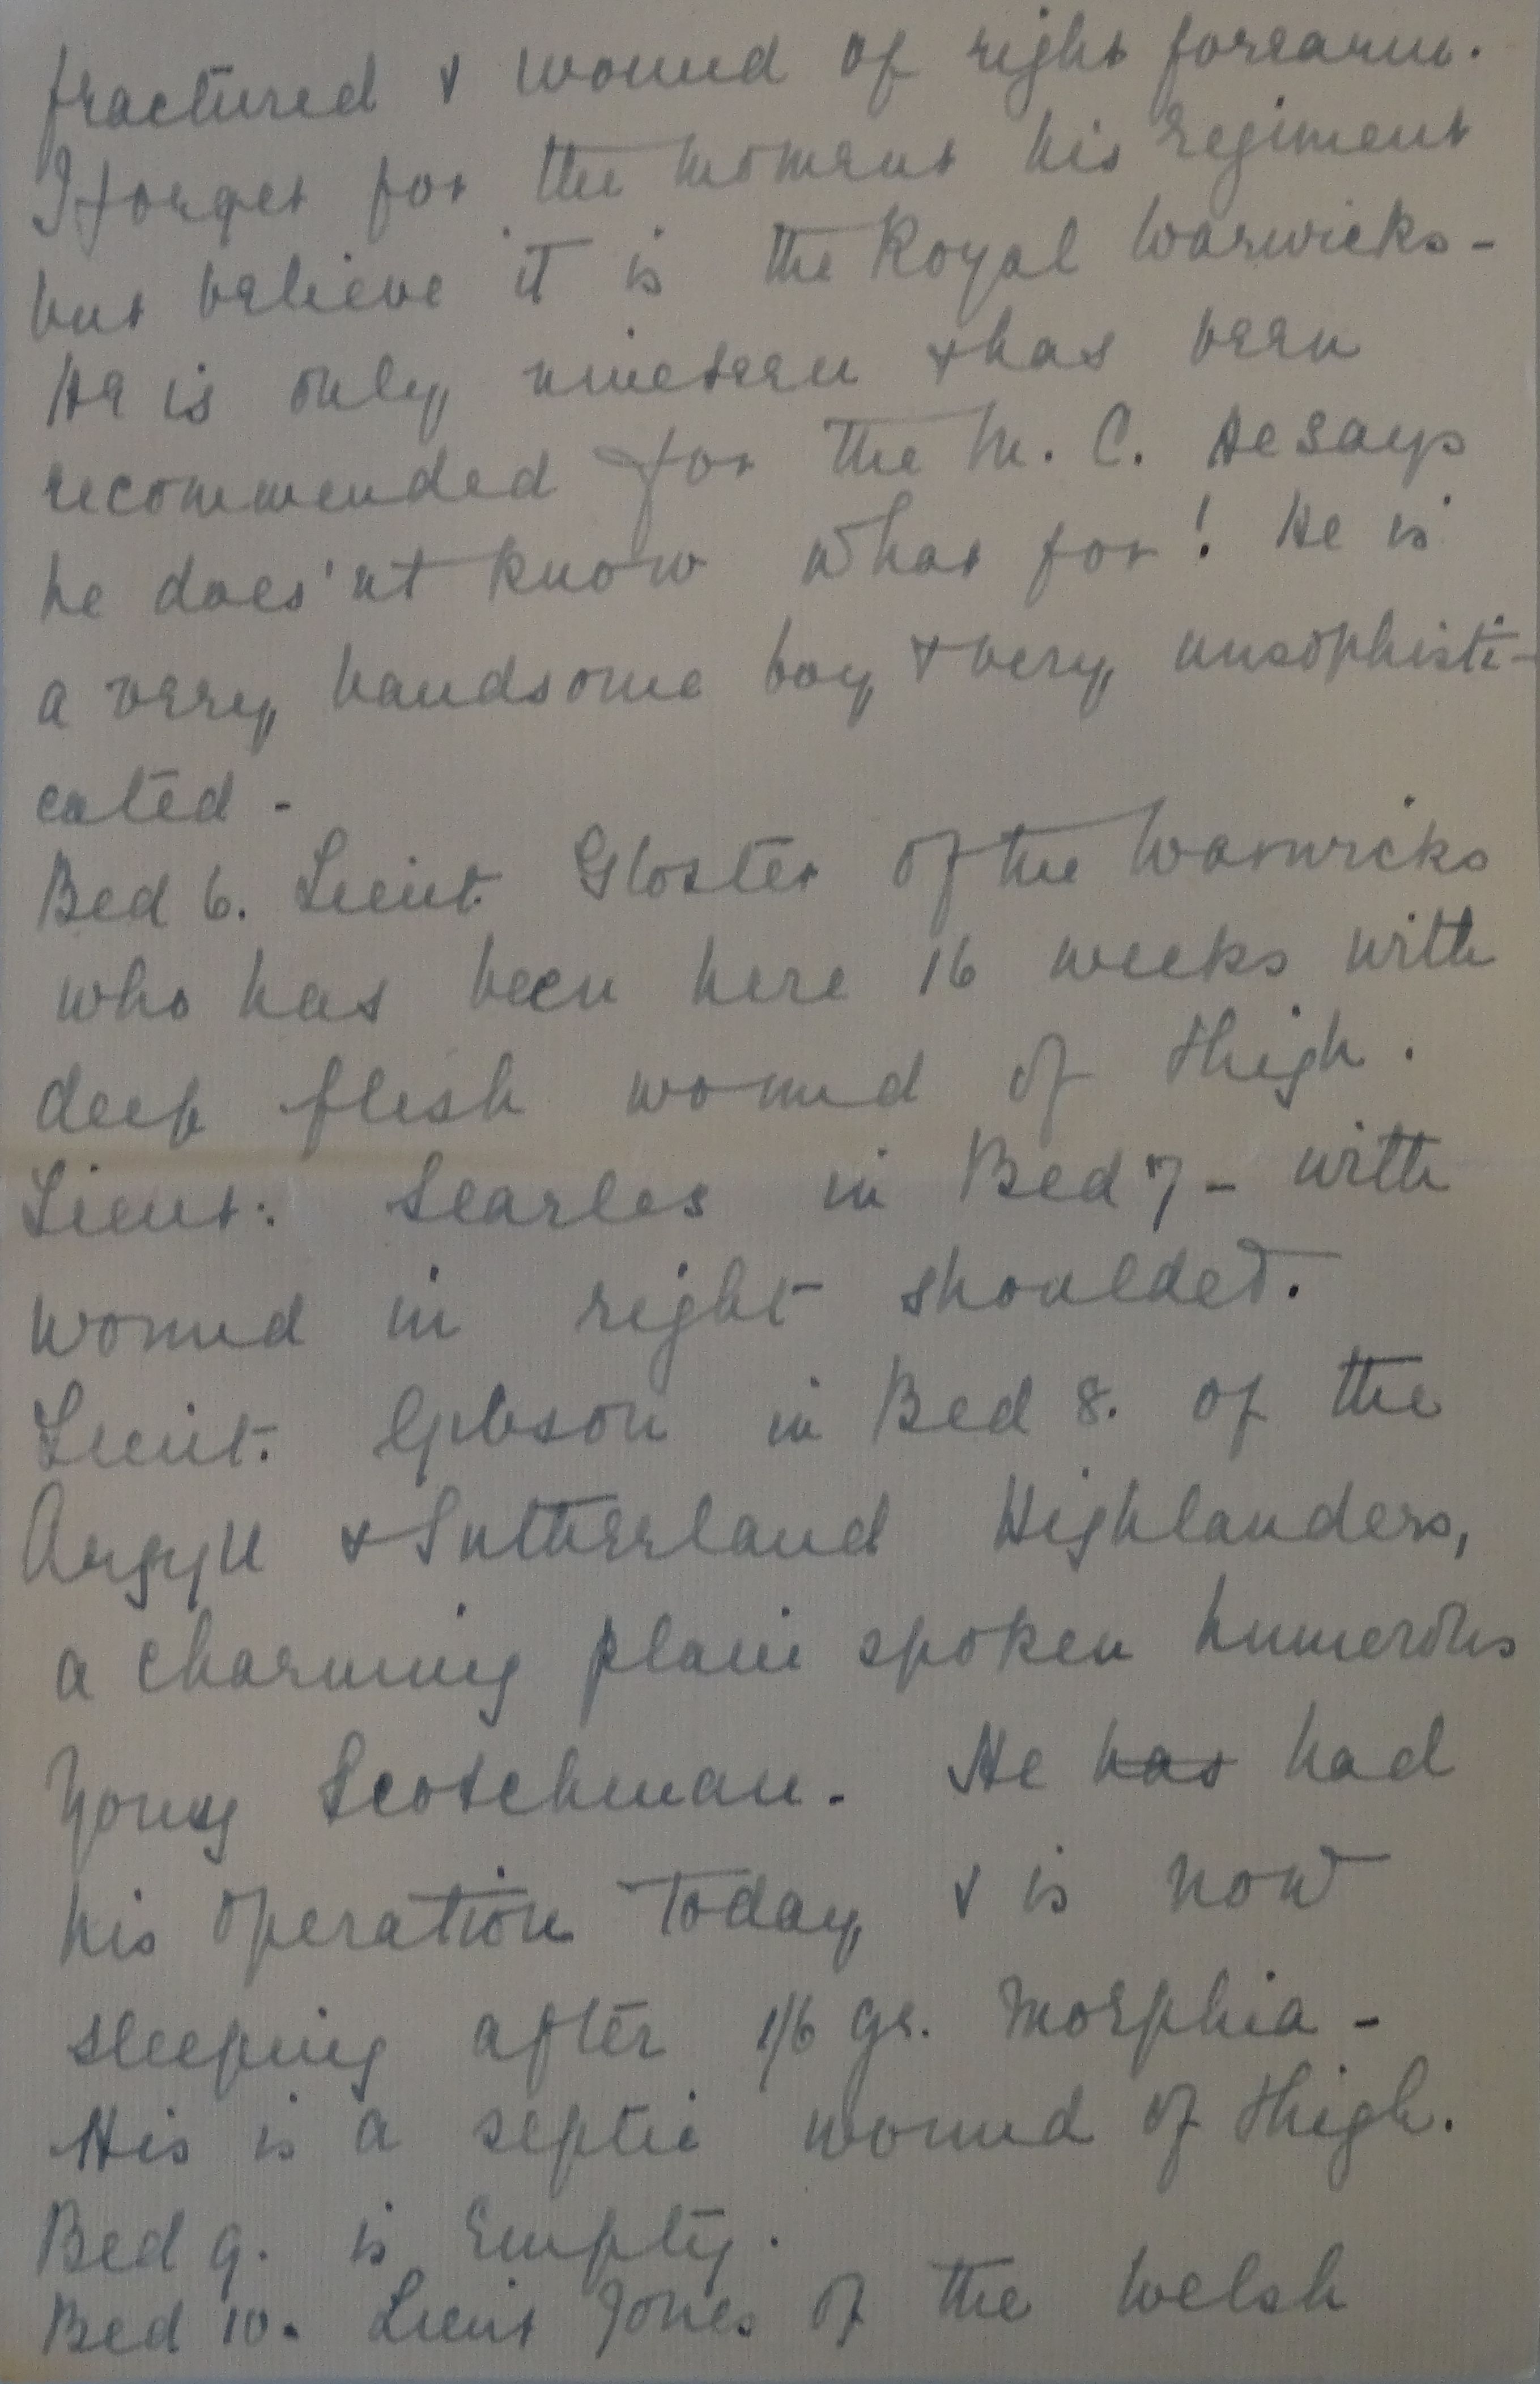 fractured & wound of right forearm.
I forget for the moment his regiment
but believe it is the Royal Warwicks -
He is only nineteen & has been
recommended for the M. C. He says
he does'nt know what for! He is
a very handsome boy & very unsophisti-
cated -
Bed 6. Lieut. Gloster of the Warwicks
who has been here 16 weeks with
deep flesh wound of thigh.
Lieut: Searles in Bed 7 - with
wound in right shoulder.
Lieut. Gibson in Bed 8. of the
Argyll & Sutherland Highlanders,
a charming plain spoken humerous
young Scotchman. He has had
his operation today & is now
sleeping after 1/6 gr. Morphia -
His is a septic wound of thigh.
Bed 9. is Empty.
Bed 10. Lieut Jones of the Welsh